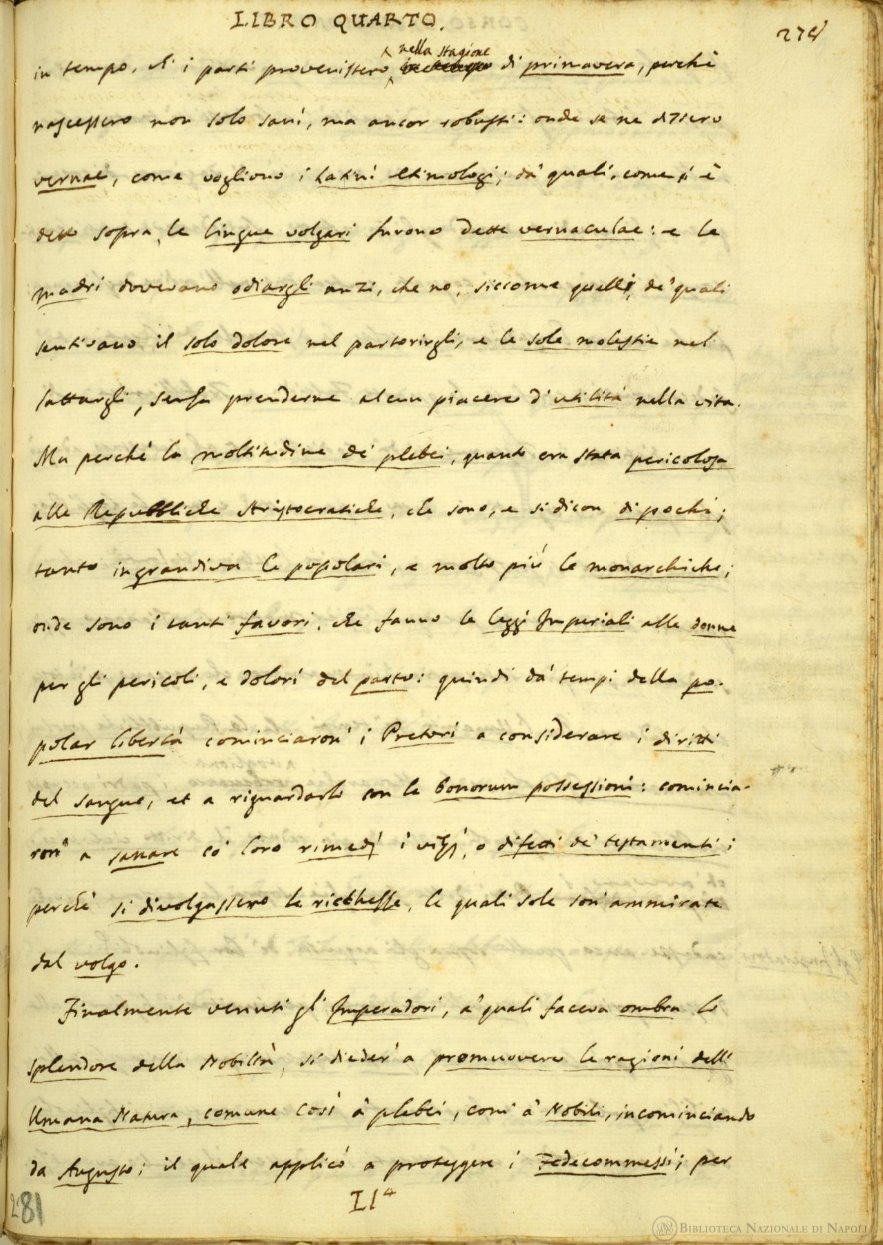 LIBRO QUARTO.
278
nella stagione
in tempo, ch' i parti provenissero di primavera, perchè
nascessero non solo sani, ma ancor robusti: onde se ne dissero
vernae, come vogliono i Latini Etimologi; da' quali, come si è
detto sopra, le lingue volgari furono dette vernaculae: e le
madri dovevano odiargli anzi, che no, siccome quelli, de' quali
sentivano il solo dolore nel partorirgli, e le sole molestie nel
lattargli, senza prenderne alcun piacere d'utilità nella vita.
Ma perchè la moltitudine de' plebei, quanto era stata pericolosa
alle Repubbliche Aristocratiche, che sono, e si dicon di pochi;
tanto ingrandiva le popolari, e molto più le monarchiche;
onde sono i tanti favori, che fanno le leggi Imperiali alle donne
per gli pericoli, e dolori del parto: quindi da' tempi della po-
polar libertà cominciaron' i Pretori a considerare i diritti
del sangue, et a riguardarlo con le bonorum possessioni: comincia-
ron' a sanare co' loro rimedj i vizj, o difetti de' testamenti;
perchè si divolgassero le ricchezze, le quali sole son' ammirate
dal volgo.
Finalmente venuti gl' Imperadori, a' quali faceva ombra lo
splendore della Nobiltà, si dieder' a promuovere le ragioni dell'
Umana Natura, comune così a' plebei, com' a' Nobili, incominciando
da Augusto; il quale applicò a proteggere i Fedecommessi; per
Ll⁴
281
BIBLIOTECA NAZIONALE DI NAPOLI